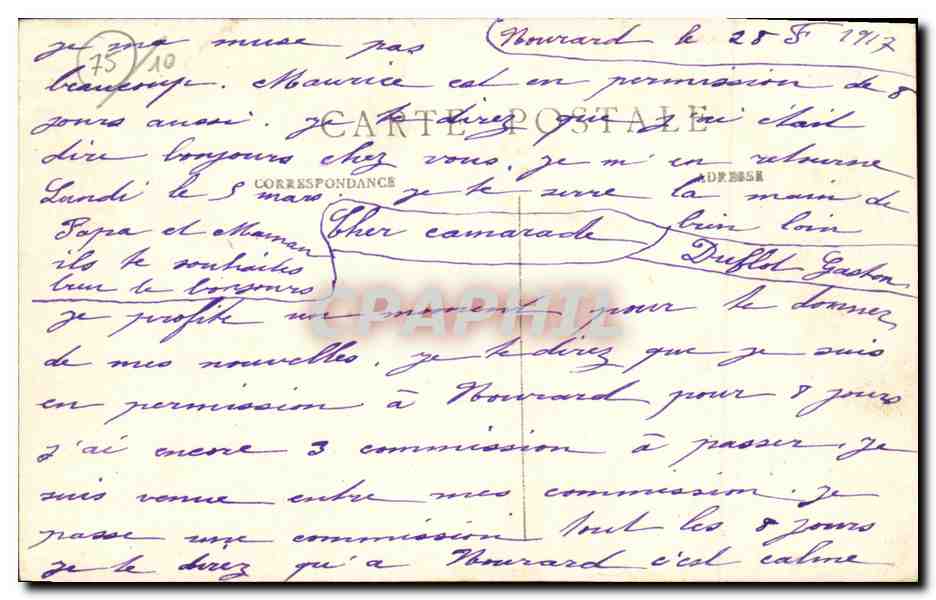 75/10
Nourard le 28 F 1917
je me muse pas
beaucoup. Maurice est en permission de 8
jours aussi. je te direz que j'ai était
CARTE POSTALE
dire bonjours chez vous. je m'en retourne
CORRESPONDANCE
ADRESSE
Lundi le 5 mars. je te serre la main de
bien loin
Duflot Gaston
Papa et Maman
ils te souhaites
bien le bonjours
Cher camarade
CPAPHIL
je profite un moment pour te donnez
de mes nouvelles. je te direz que je suis
en permission à Nourard pour 8 jours
j'ai encore 3 commission à passer. je
suis venue entre mes commission. je
passe une commission tout les 8 jours
je te direz qu'a Nourard c'est calme